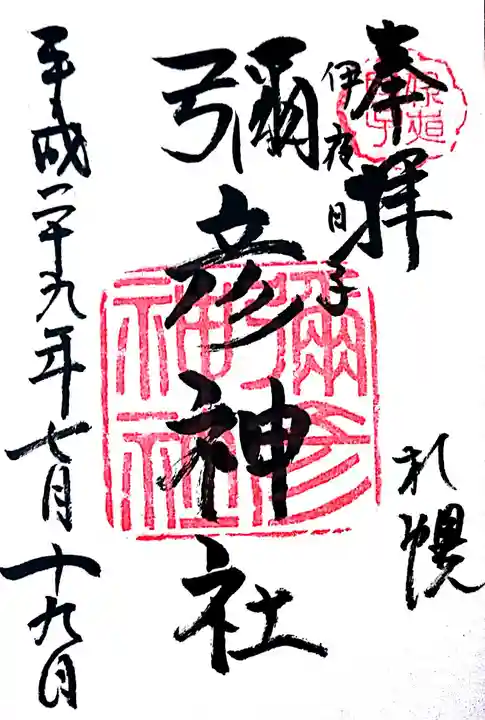 奉拝
札幌
伊夜日子
彌彦神社
彌彦
神社
平成二十九年七月十九日